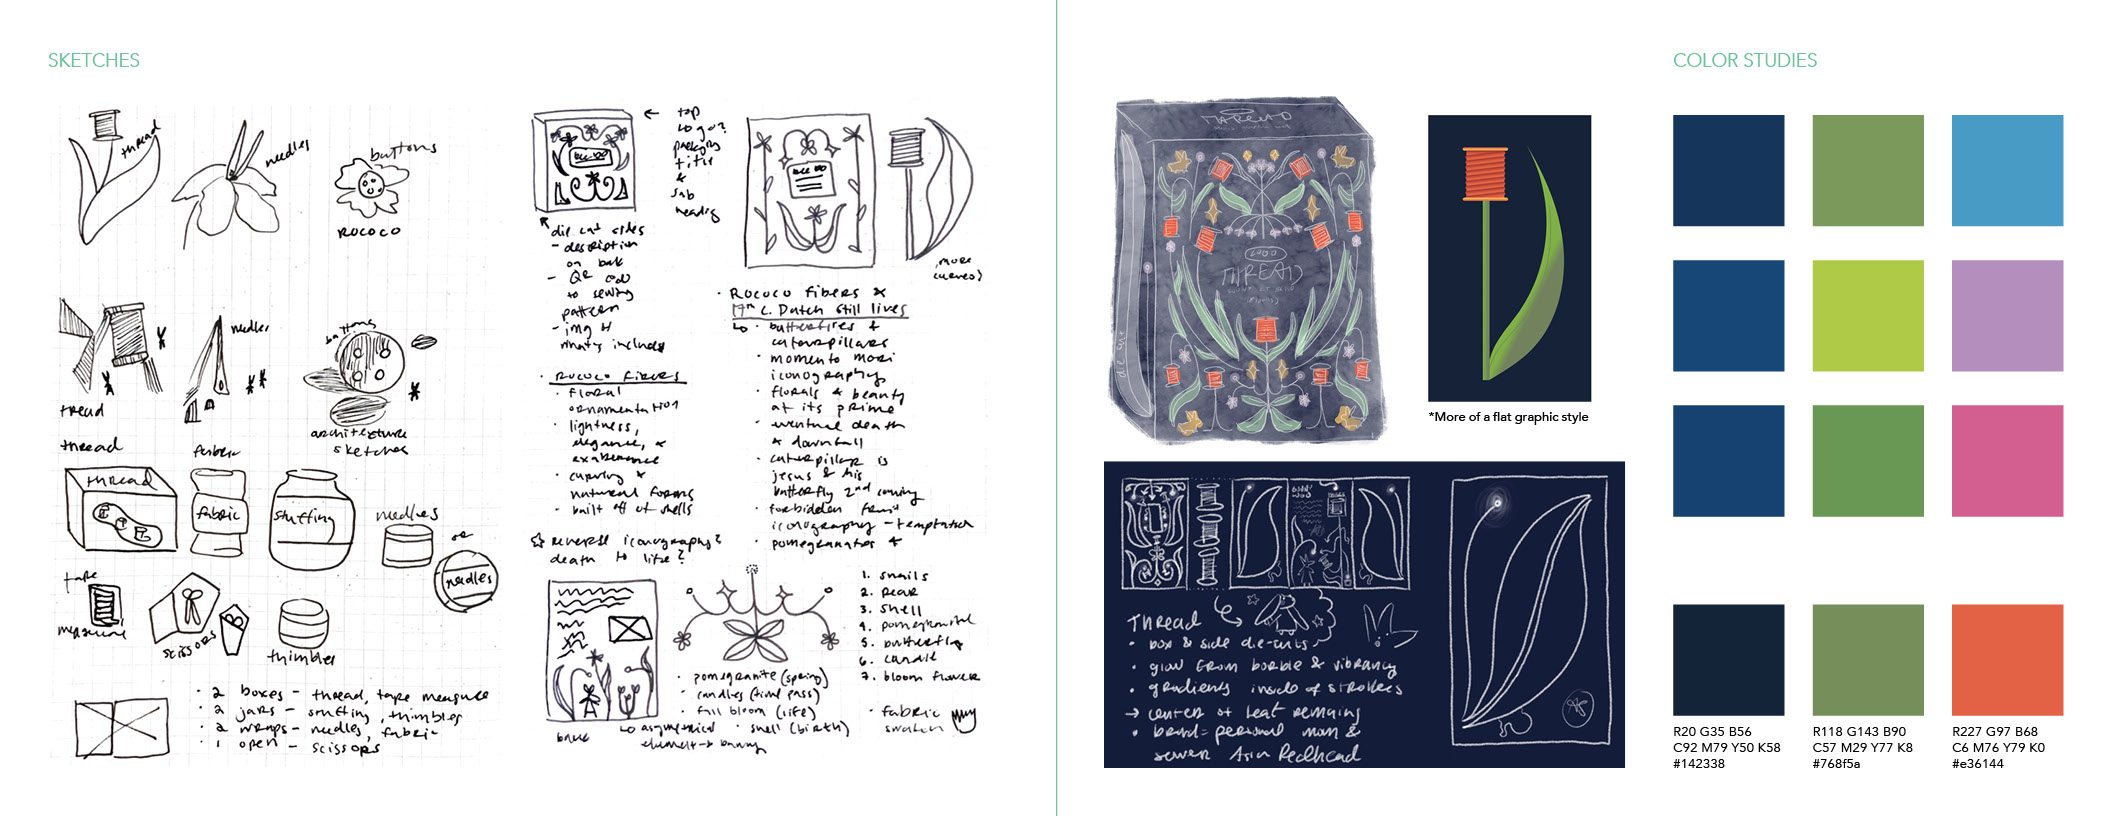 SKETCHES
thread
needles
buttons
ROCOCO
needles
buttons
thread
architexture
sketches
thread
fabric
thread
fabric
stuffing
needles
or
needles
tape
measure
scissors
thimbles
· 2 boxes - thread, tape measure
· 2 jars - stuffing, thimbles
· 2 wraps - needles, fabric
· 1 open - scissors
← top
logo?
packaging
title
&
sub
heading
die cut sides
- description
on back
- QR code
to sewing
pattern
- img of
what's included
· Rococo Fibers
· floral
ornamentation
· lightness,
elegance, &
exuberance
· curving &
natural forms
· built off of shells
☆ reverse iconography?
death to life?
(more
curves)
· Rococo fibers &
17th C. Dutch still lives
↳ · butterflies &
caterpillars
· momento mori
iconography
· florals & beauty
at its prime
· eventual death
& downfall
· caterpillar is
jesus & his
butterfly 2nd coming
· forbidden fruit
iconography - temptation
· pomegranates &
1. snails
2. pear
3. shell
4. pomegranate
5. butterfly
6. candle
7. bloom flower
· pomegranite (spring)
· candles (time pass)
· full bloom (life)
· shell (birth)
· fabric
swatch
back
↳ asymmetrical
element → bunny
THREAD
THREAD
die cut
*More of a flat graphic style
Thread
· box & side die-cuts
· glow from bobble & vibrancy
· gradients inside of strokes
→ center of leaf remaining
· brand = personal mom &
sewer Asia Redhead
COLOR STUDIES
R20 G35 B56
C92 M79 Y50 K58
#142338
R118 G143 B90
C57 M29 Y77 K8
#768f5a
R227 G97 B68
C6 M76 Y79 K0
#e36144